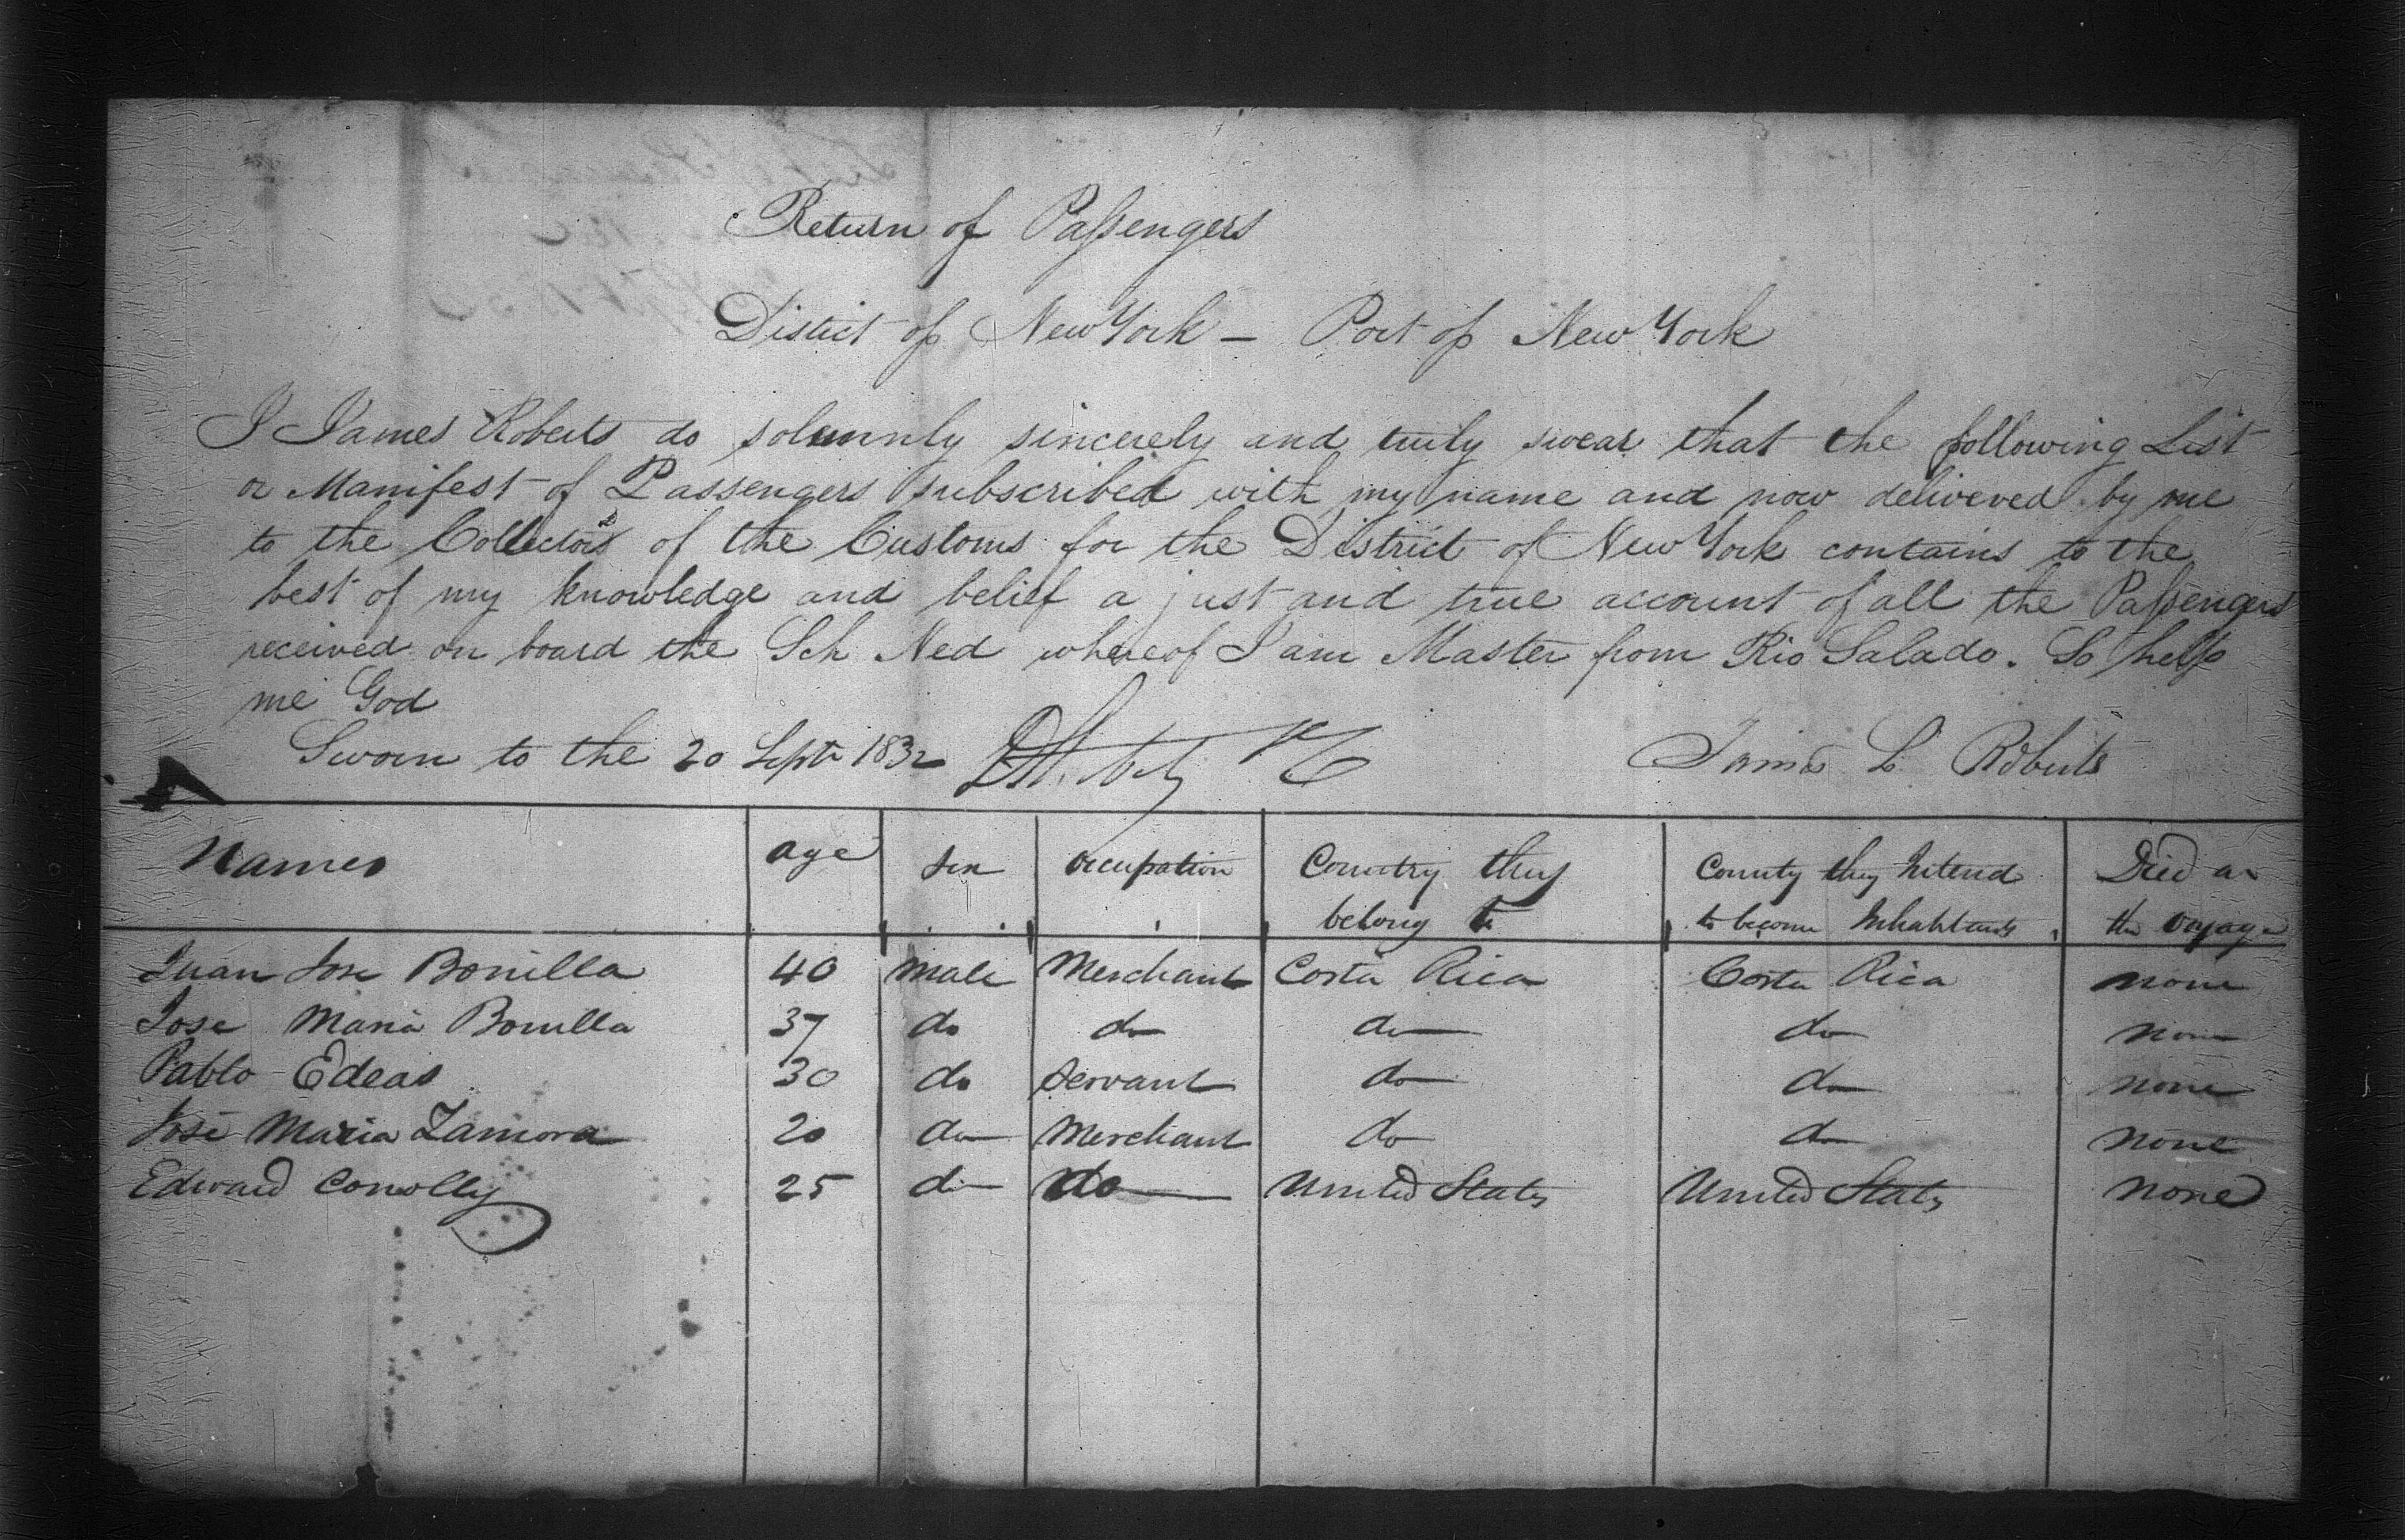 Return of Passengers
District of New York — Port of New York
I James Roberts do solemnly sincerely and truly swear that the following List
or Manifest of Passengers subscribed with my name and now delivered by me
to the Collector of the Customs for the District of New York contains to the
best of my knowledge and belief a just and true account of all the Passengers
received on board the Sch Ned whereof I am Master from Rio Salado. So help
me God
Sworn to the 20 Septr 1832 James L Roberts
Names age sex occupation Country they belong to County they Intend to become Inhabitants Died on the voyage
Juan Jose Bonilla 40 male Merchant Costa Rica Costa Rica none
Jose Maria Bonilla 37 do do do do none
Pablo Edeas 30 do servant do do none
José Maria Zamora 20 do Merchant do do none
Edward Conolly 25 do do United States United States none